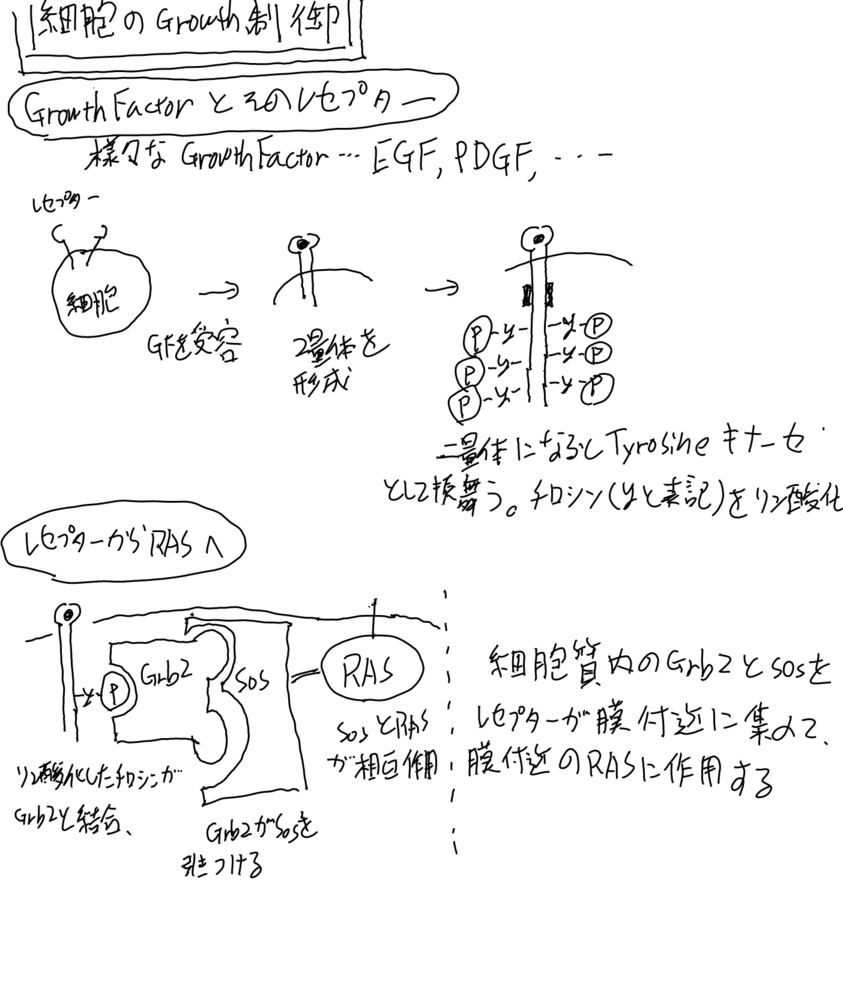 細胞のGrowth制御
Growth Factorとそのレセプター
様々な Growth Factor … EGF, PDGF, ・・・
レセプター
細胞
→
→
GFを受容
2量体を
形成
P -y- -y- P
P -y- -y- P
P -y- -y- P
二量体になるとTyrosineキナーゼ
として振舞う。チロシン(yと表記)をリン酸化
レセプターからRASへ
y P
Grb2
SOS
RAS
リン酸化したチロシンが
Grb2と結合、
Grb2がSosを
引きつける
SosとRAS
が相互作用
細胞質内のGrb2とSosを
レセプターが膜付近に集めて、
膜付近のRASに作用する